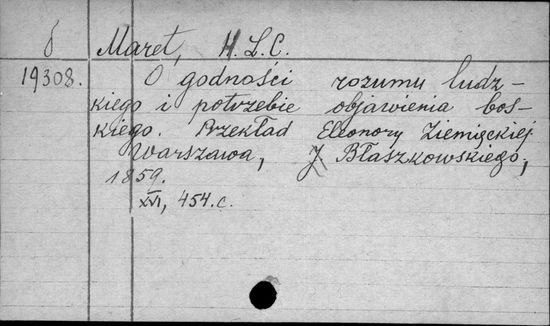 δ Maret, H. L. C.
19308. O godności rozumu ludz-
kiego i potrzebie objawienia bos-
kiego. Przekład Eleonory Ziemięckiej
Warszawa, J Błaszkowskiego,
1859.
XVI, 454.c.